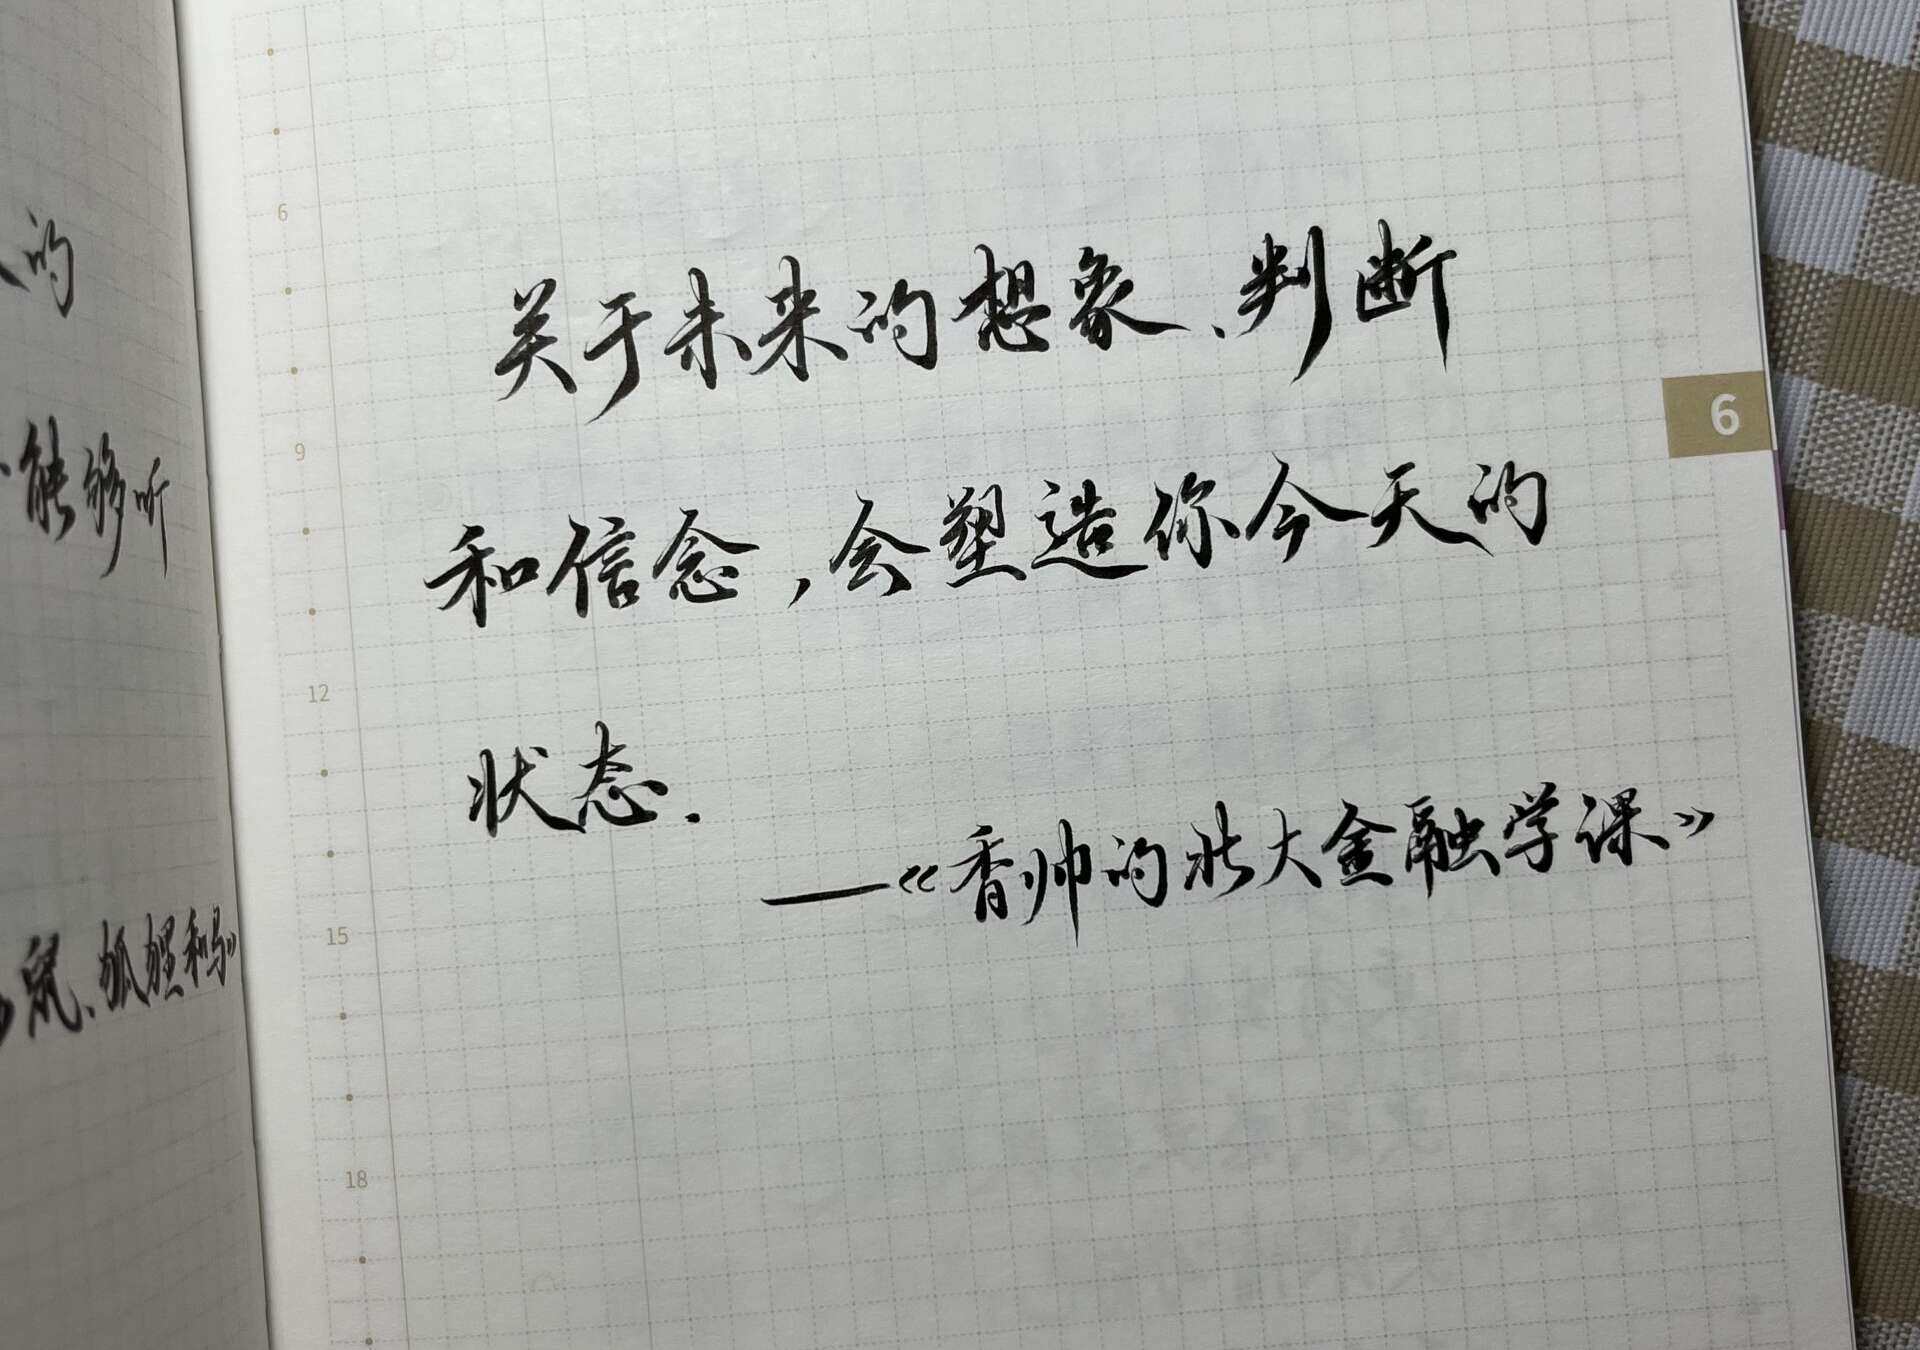 的
能够听
鼠、狐狸和马》
6
9
12
15
18
关于未来的想象、判断
和信念,会塑造你今天的
状态.
——《香帅的北大金融学课》
6